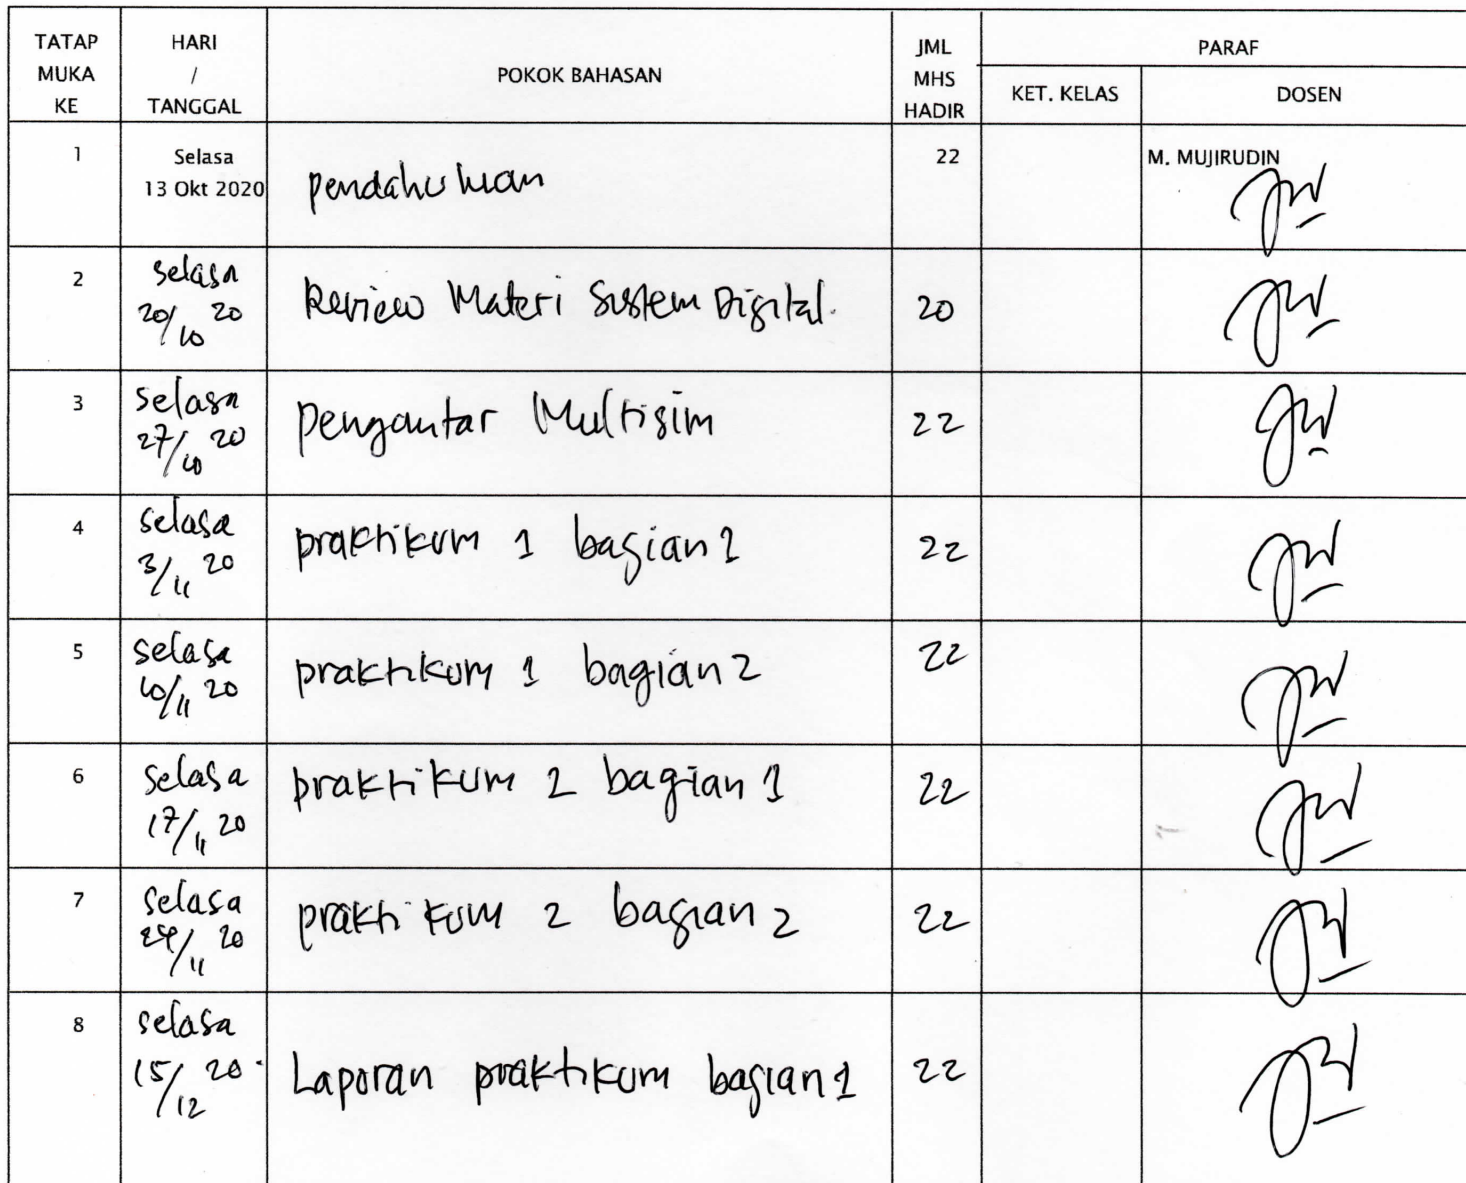 TATAP MUKA KE HARI / TANGGAL POKOK BAHASAN JML MHS HADIR PARAF
KET. KELAS DOSEN
1 Selasa 13 Okt 2020 pendahuluan 22 M. MUJIRUDIN
2 selasa 20/10 20 Review Materi Sistem Digital. 20
3 selasa 27/10 20 pengantar Multisim 22
4 selasa 3/11 20 praktikum 1 bagian 1 22
5 selasa 10/11 20 praktikum 1 bagian 2 22
6 selasa 17/11 20 praktikum 2 bagian 1 22
7 selasa 24/11 20 praktikum 2 bagian 2 22
8 selasa 15/12 20 Laporan praktikum bagian 1 22